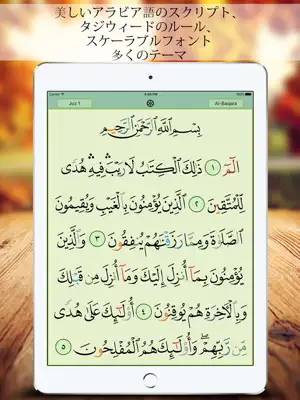 美しいアラビア語のスクリプト、
タジウィードのルール、
スケーラブルフォント
多くのテーマ
Juz 1
Al-Baqara
بِسْمِ اللَّهِ الرَّحْمَٰنِ الرَّحِيمِ
الٓمٓ ١ ذَٰلِكَ الْكِتَٰبُ لَا رَيْبَ ۛ فِيهِ ۛ هُدًى
لِّلْمُتَّقِينَ ٢ الَّذِينَ يُؤْمِنُونَ بِالْغَيْبِ وَيُقِيمُونَ
الصَّلَوٰةَ وَمِمَّا رَزَقْنَٰهُمْ يُنفِقُونَ ٣ وَالَّذِينَ
يُؤْمِنُونَ بِمَآ أُنزِلَ إِلَيْكَ وَمَآ أُنزِلَ مِن قَبْلِكَ
وَبِالْءَاخِرَةِ هُمْ يُوقِنُونَ ٤ أُو۟لَٰٓئِكَ عَلَىٰ هُدًى
مِّن رَّبِّهِمْ ۖ وَأُو۟لَٰٓئِكَ هُمُ الْمُفْلِحُونَ ٥